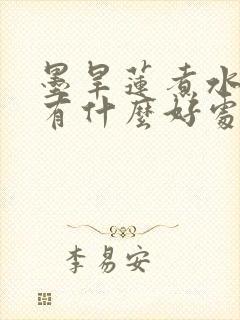 墨旱蓮煮水
有什麼好處
李易安